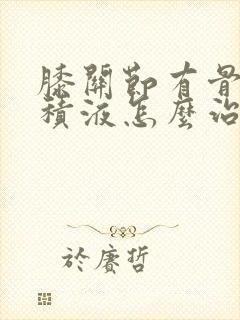 膝關節有骨
積液怎麼治
於賡哲